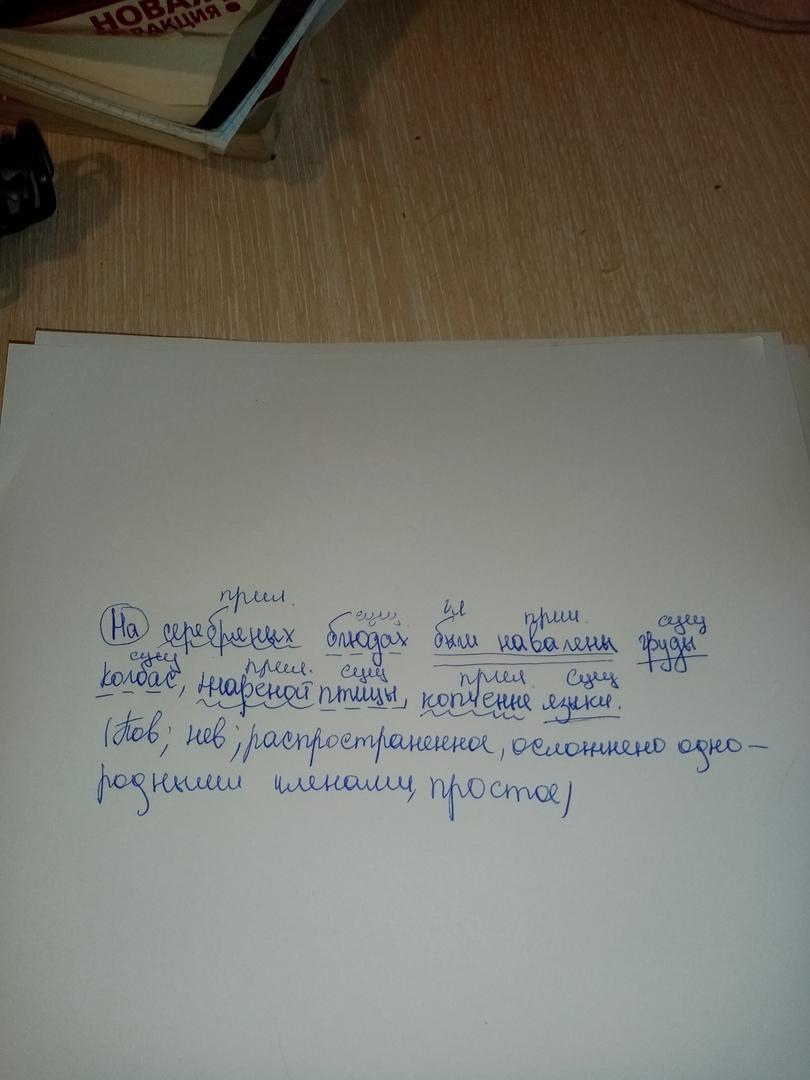 НОВАЯ
РЕДАКЦИЯ
прил.
сущ.
гл
прич.
сущ
На серебряных блюдах были навалены груды
сущ
прил.
сущ
прил
сущ
колбас, жареной птицы, копчение языки.
(Пов; нев; распространенное, осложнено одно-
родными членами, простое)